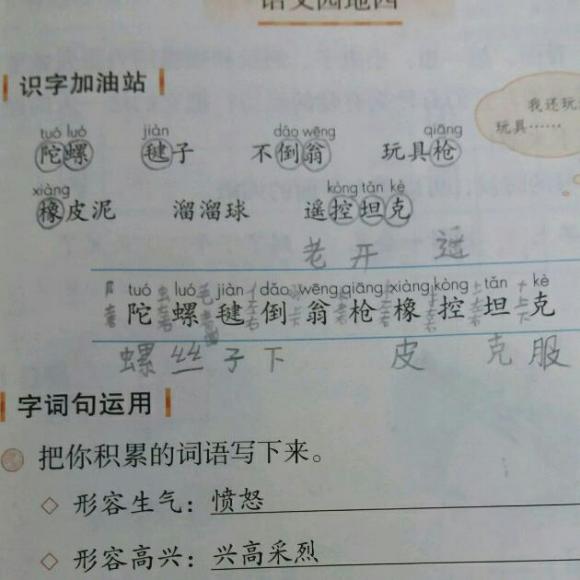 语文园地四
识字加油站
我还玩
玩具……
tuó luó jiàn dǎo wēng qiāng
陀螺 毽子 不倒翁 玩具枪
xiàng kòng tǎn kè
橡皮泥 溜溜球 遥控坦克
老 开 遥
tuó luó jiàn dǎo wēng qiāng xiàng kòng tǎn kè
陀 螺 毽 倒 翁 枪 橡 控 坦 克
螺 丝 子 下 皮 克 服
字词句运用
把你积累的词语写下来。
◇ 形容生气：愤怒
◇ 形容高兴：兴高采烈